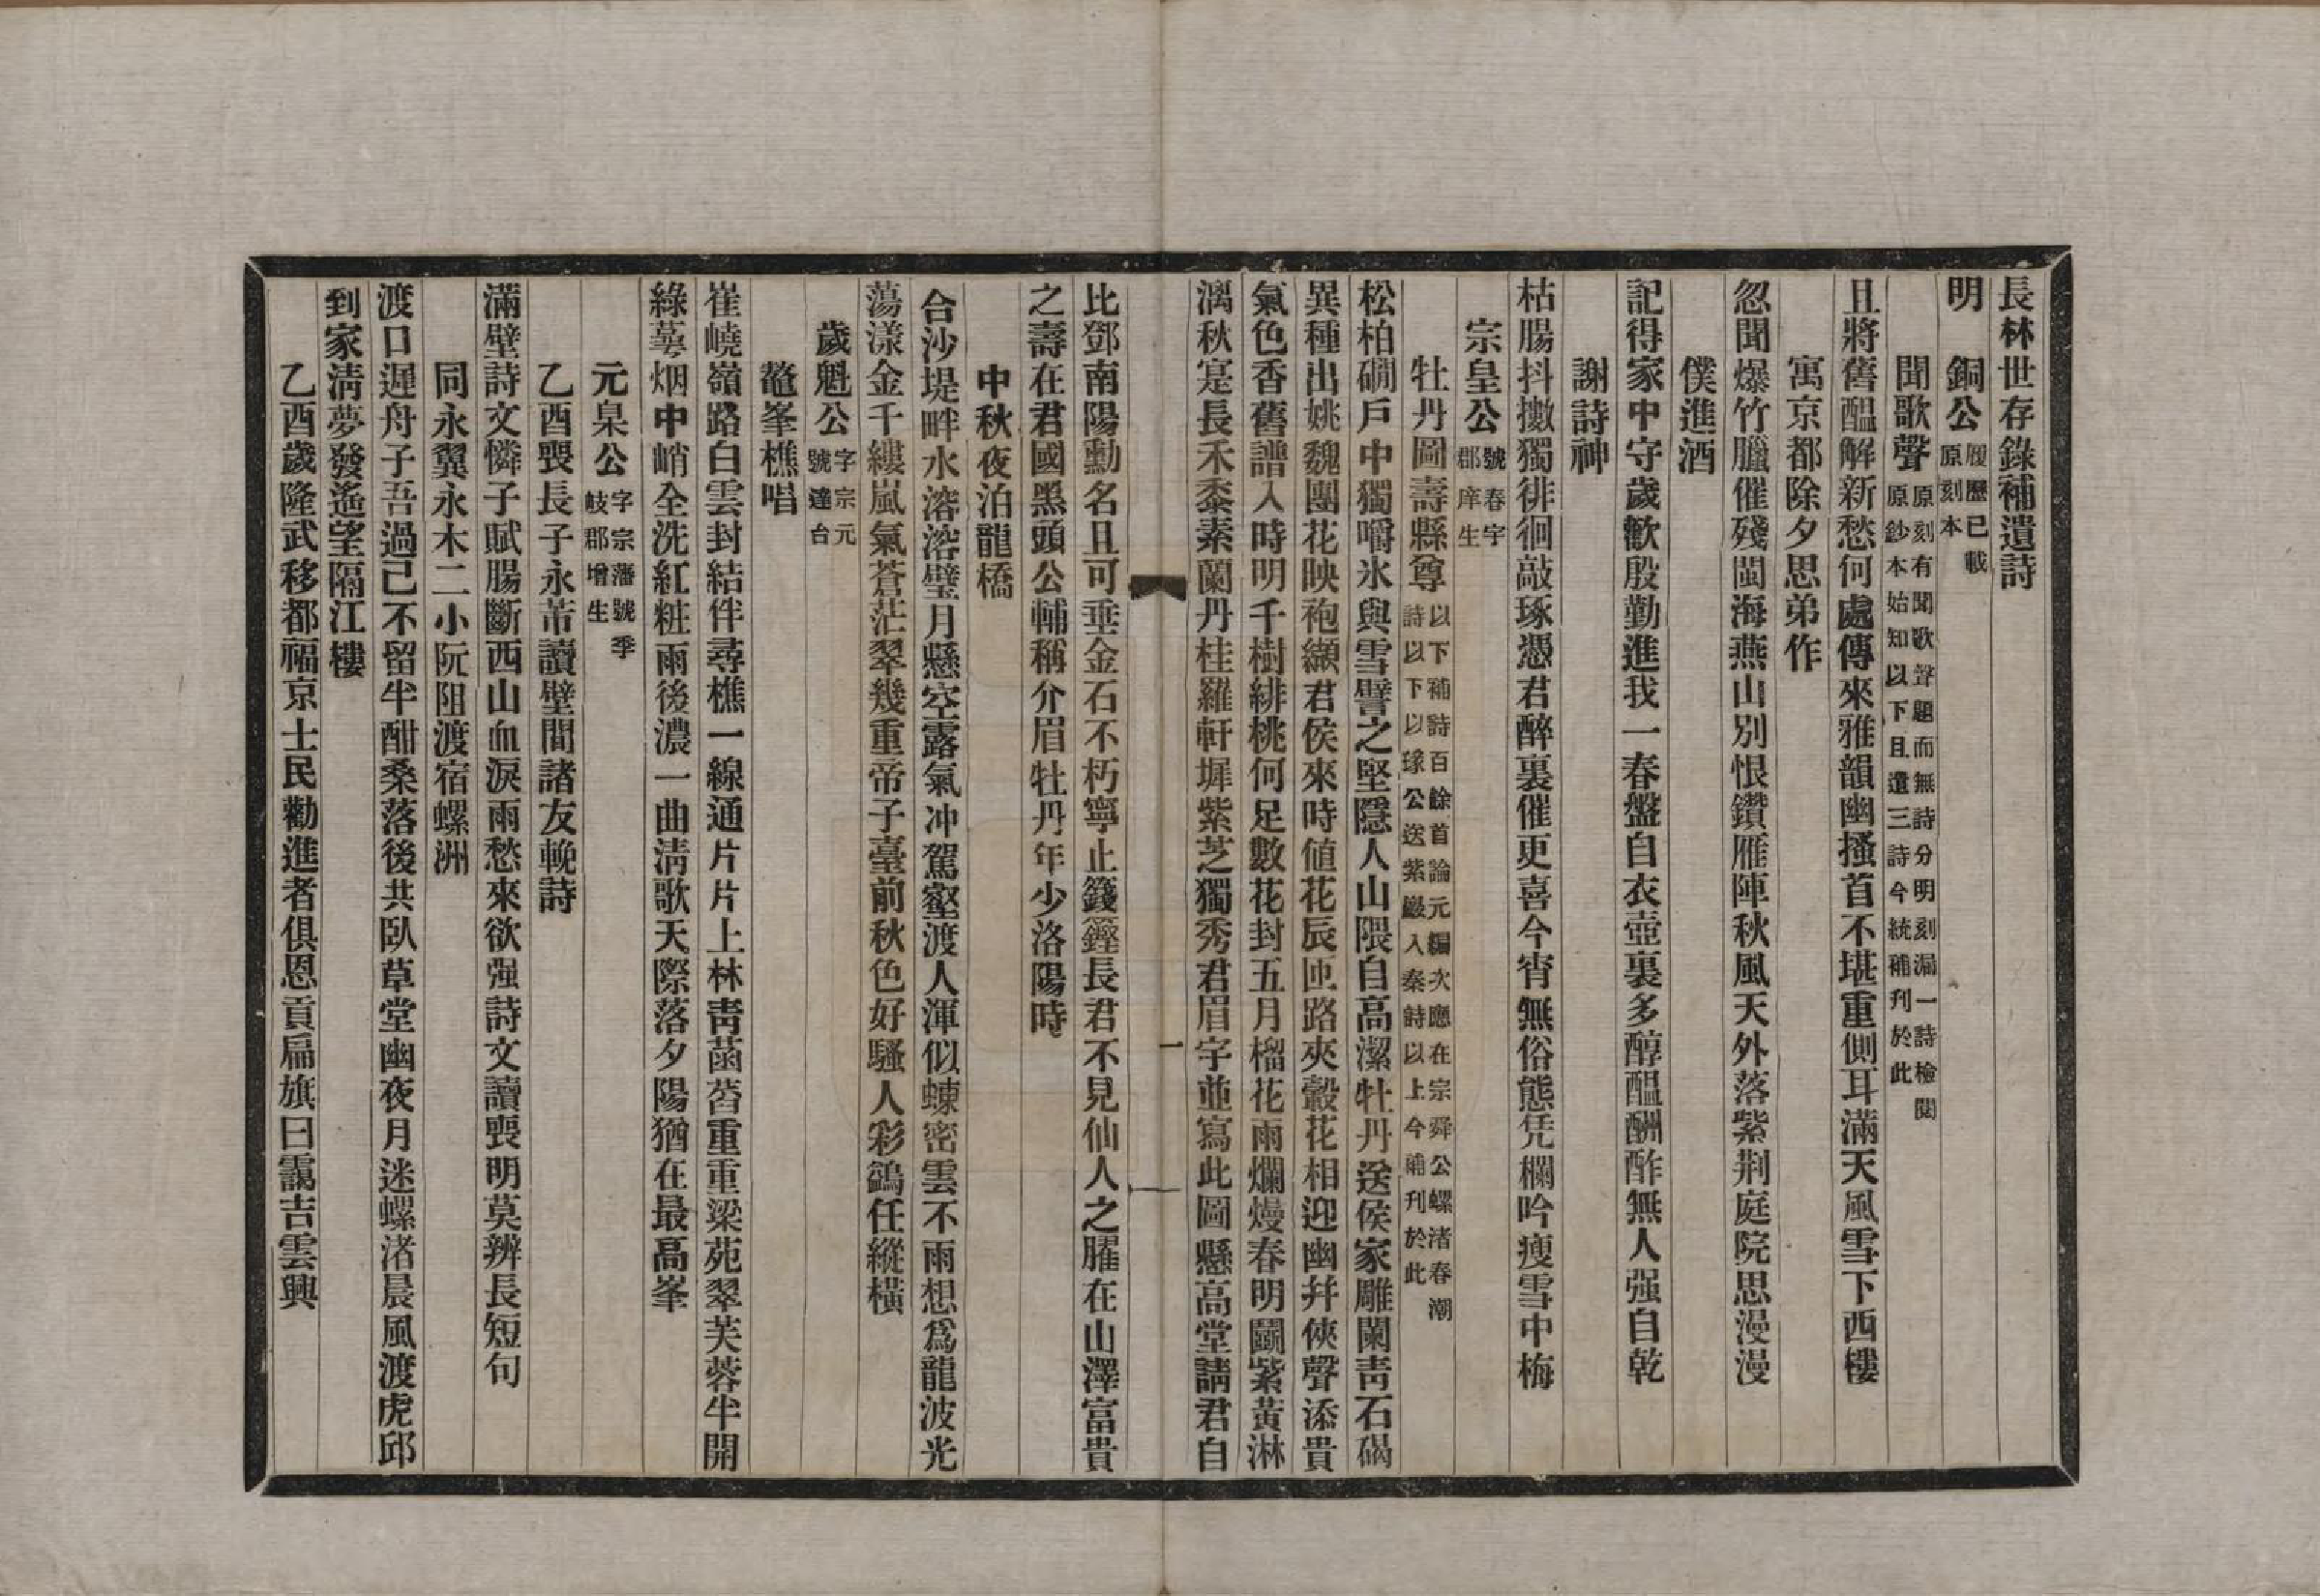 長林世存錄補遺詩
明　銅公履歷已載原刻本
聞歌聲原刻有聞歌聲題而無詩分明刻漏一詩檢閱原鈔本始知以下且遺三詩今統補刊於此
且將舊醞解新愁何處傳來雅韻幽搔首不堪重側耳滿天風雪下西樓
寓京都除夕思弟作
忽聞爆竹臘催殘閩海燕山別恨鑽雁陣秋風天外落紫荆庭院思漫漫
僕進酒
記得家中守歲歡殷勤進我一春盤白衣壺裏多醇醞酬酢無人强自乾
謝詩神
枯腸抖擻獨徘徊敲琢憑君醉裏催更喜今宵無俗態凭欄吟瘦雪中梅
宗皇公號春宇郡庠生
牡丹圖壽縣尊以下補詩百餘首論元編次應在宗舜公螺渚春潮詩以下以瑑公送紫巖入秦詩以上今補刊於此
松柏磵戶中獨嚼氷與雪譬之堅隱人山隈自高潔牡丹送侯家雕闌靑石碣
異種出姚魏團花映袍纈君侯來時値花辰匝路夾轂花相迎幽幷俠聲添貴
氣色香舊譜入時明千樹緋桃何足數花封五月榴花雨爛熳春明鬭紫黃淋
漓秋寔長禾黍素蘭丹桂羅軒墀紫芝獨秀君眉宇並寫此圖懸高堂請君自
比鄧南陽勳名且可垂金石不朽寧止籛鏗長君不見仙人之臞在山澤富貴
之壽在君國黑頭公輔稱介眉牡丹年少洛陽時
中秋夜泊龍橋
合沙堤畔水溶溶璧月懸空露氣冲駕壑渡人渾似蝀密雲不雨想爲龍波光
蕩漾金千縷嵐氣蒼茫翠幾重帝子臺前秋色好騷人彩鷁任縱橫
歲魁公字宗元號達台
鼇峯樵唱
崔嶢嶺路白雲封結伴尋樵一線通片片上林靑菡萏重重梁苑翠芙蓉半開
綠萼烟中峭全洗紅粧雨後濃一曲淸歌天際落夕陽猶在最高峯
元臬公字宗藩號季岐郡增生
乙酉喪長子永芾讀壁間諸友輓詩
滿壁詩文憐子賦腸斷西山血淚雨愁來欲强詩文讀喪明莫辨長短句
同永翼永木二小阮阻渡宿螺洲
渡口遲舟子吾過己不留半酣桑落後共臥草堂幽夜月迷螺渚晨風渡虎邱
到家淸夢發遙望隔江樓
乙酉歲隆武移都福京士民勸進者俱恩貢扁旗曰靄吉雲興
一